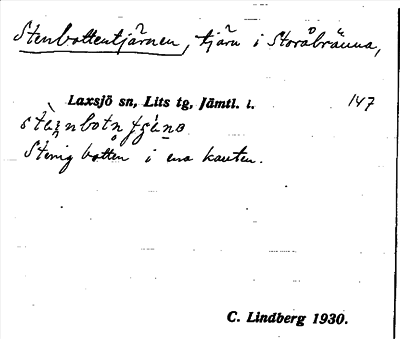 Stenbottentjärnen, tjärn i Storåbränna,
Laxsjö sn, Lits tg, Jämtl. l. 147
Stenig botten i ena kanten.
C. Lindberg 1930.